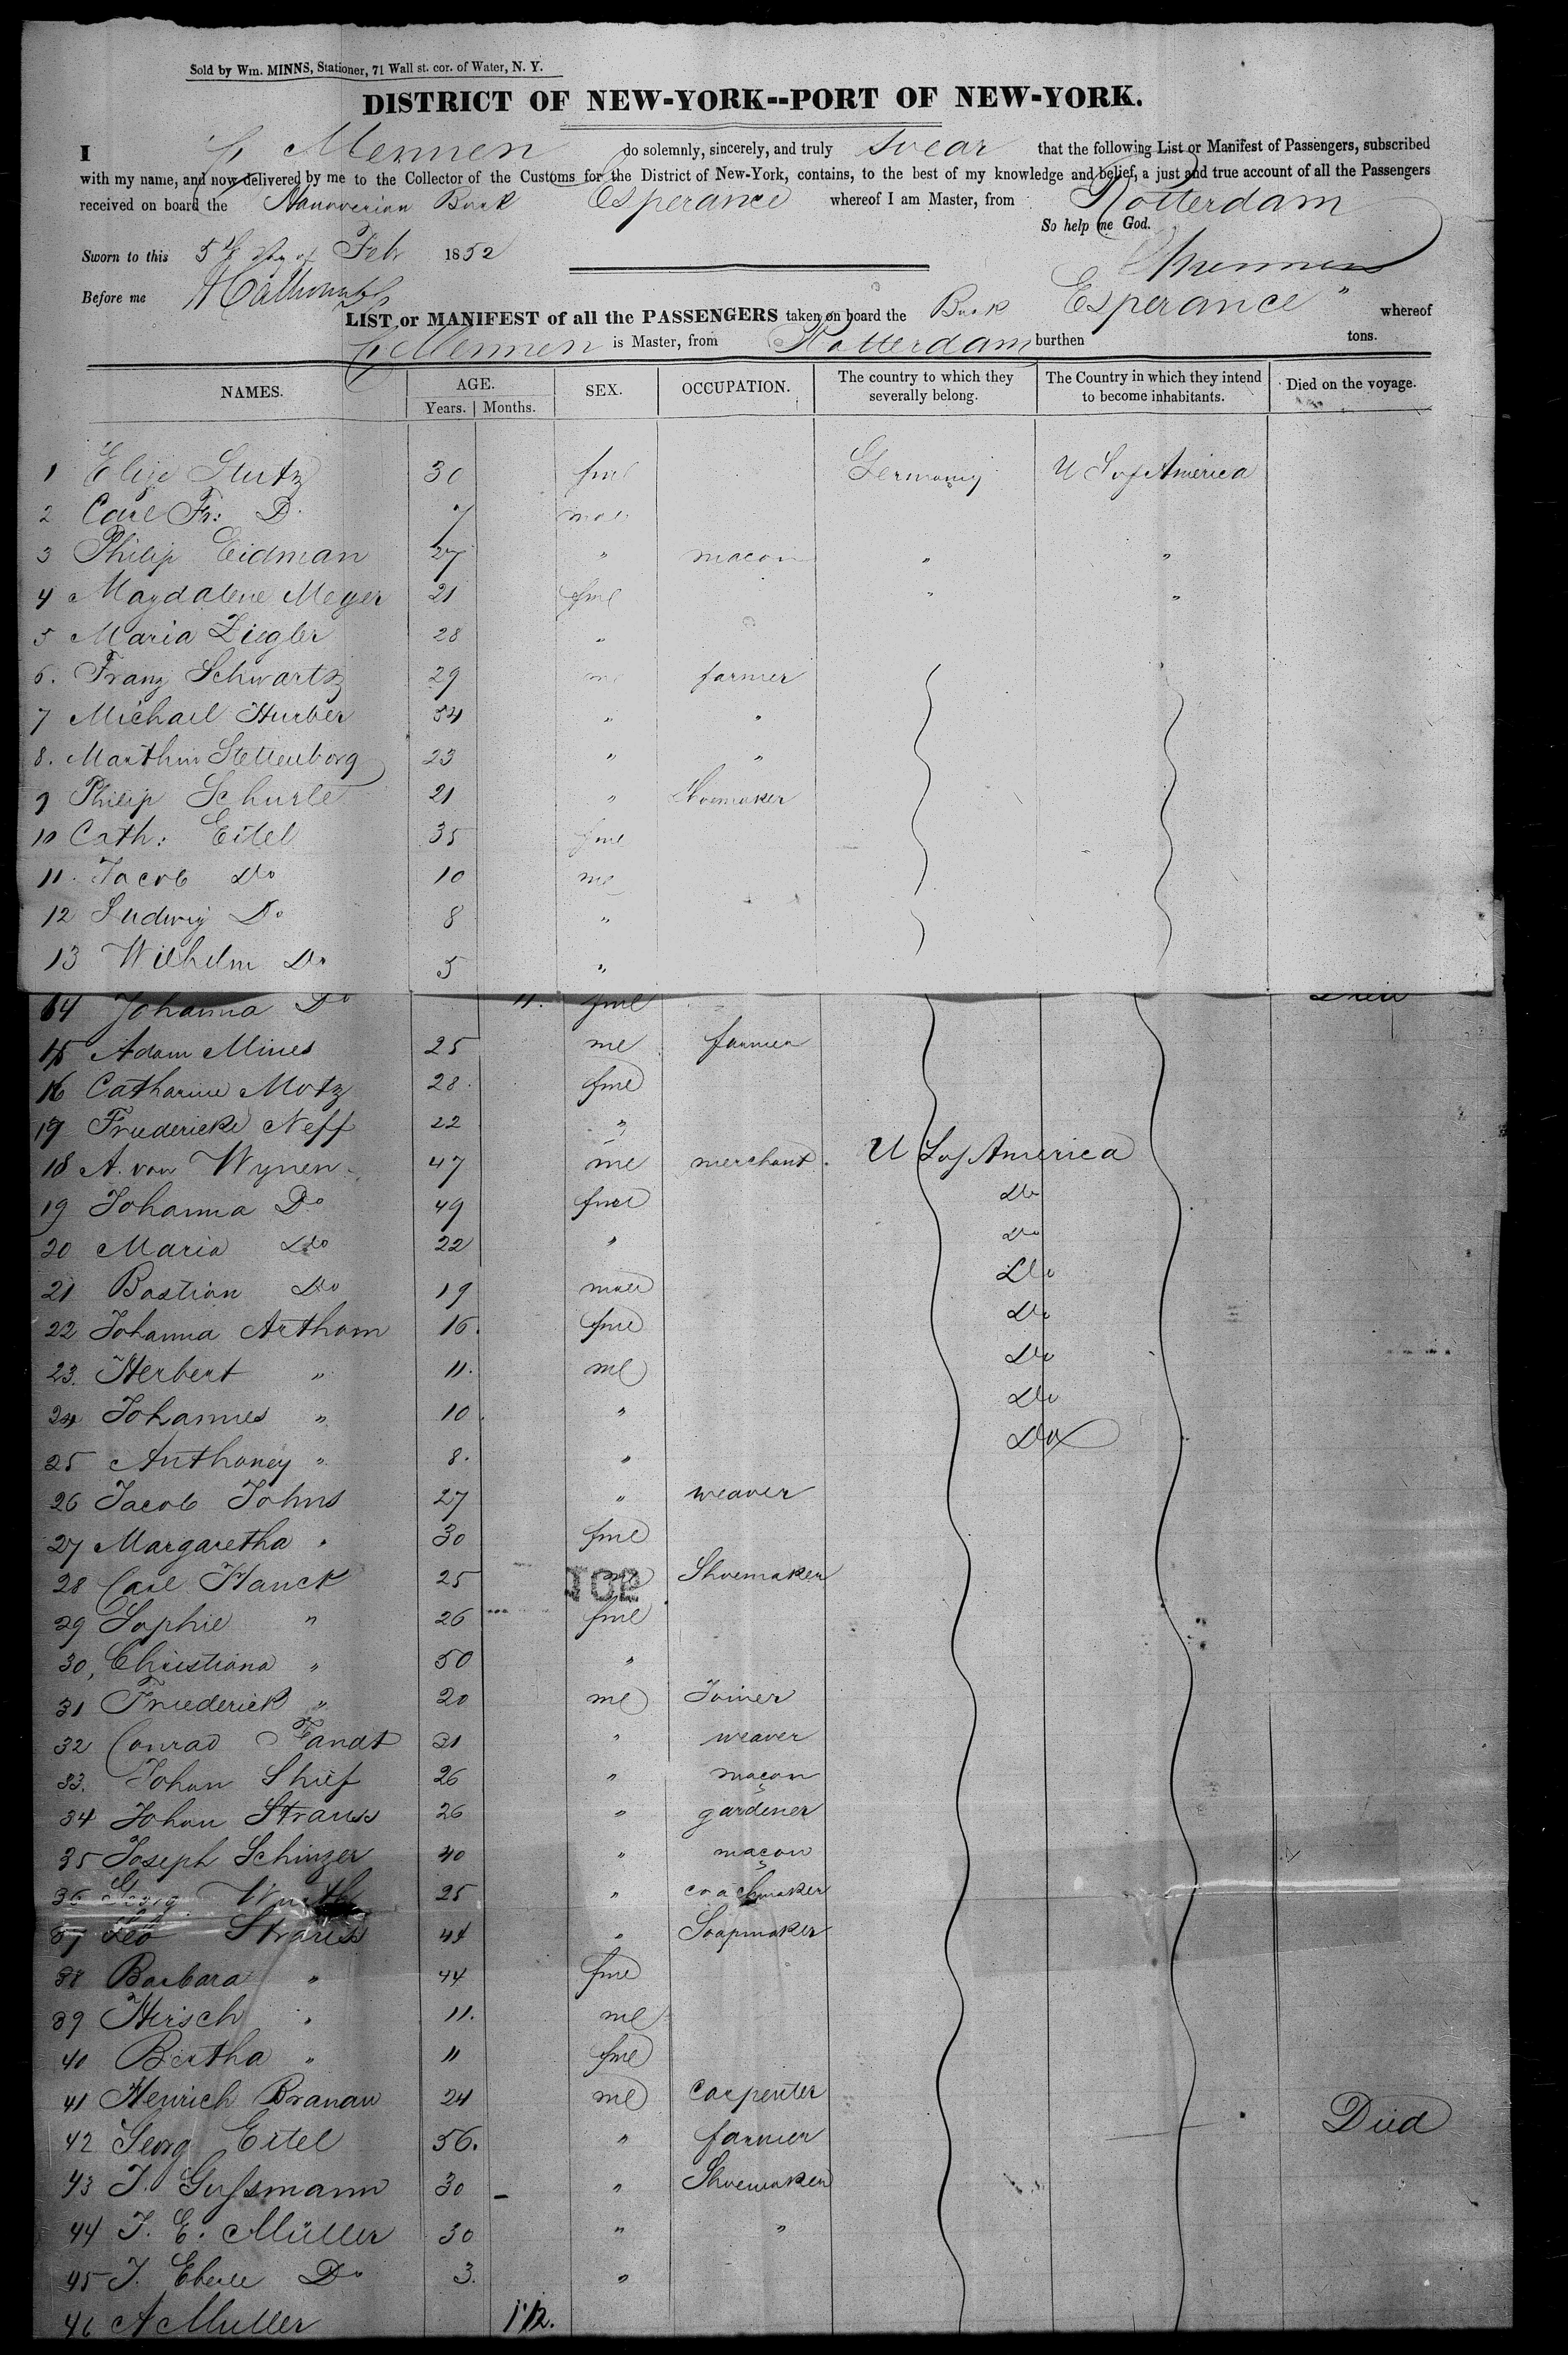 Sold by Wm. MINNS, Stationer, 71 Wall st. cor. of Water, N. Y.
DISTRICT OF NEW-YORK--PORT OF NEW-YORK.
I Mennen do solemnly, sincerely, and truly swear that the following List or Manifest of Passengers, subscribed
with my name, and now delivered by me to the Collector of the Customs for the District of New-York, contains, to the best of my knowledge and belief, a just and true account of all the Passengers
received on board the Hanoverian Bark Esperance whereof I am Master, from Rotterdam
So help me God.
Sworn to this 5th day of Feb 1852
Mennen
Before me
LIST or MANIFEST of all the PASSENGERS taken on board the Bark Esperance" whereof
Mennen is Master, from Rotterdam burthen tons.
NAMES. AGE. Years. Months. SEX. OCCUPATION. The country to which they severally belong. The Country in which they intend to become inhabitants. Died on the voyage.
1 Elise 30 fml Germany U S of America
2 Carl Fr: D. 7 male
3 Philip Eidman 27 " macon " "
4 Magdalene Meyer 21 fml " "
5 Maria Ziegler 28 "
6. Franz Schwartz 29 ml farmer
7 Michael Hurber 34 " "
8. Marthin Stettenborg 23 " "
9 Philip Schurle 21 " Shoemaker
10 Cath: Eitel 35 fml
11. Jacob Do 10 ml
12 Ludwig Do 8 "
13 Wilhelm Do 5 "
14 Johanna Do 11. fml Died
15 Adam Mines 25 ml farmer
16 Catharine Motz 28. fml
17 Friedericke Neff 22 "
18 A. van Wynen 47 ml merchant. U S of America
19 Johanna Do 49 fml Do
20 Maria Do 22 " Do
21 Bastian Do 19 male Do
22 Johanna Arthom 16. fml Do
23. Herbert " 11. ml Do
24 Johannes " 10. " Do
25 Anthoney " 8. " Do
26 Jacob Johns 27 " weaver
27 Margaretha " 30 fml
28 Carl Hanck 25 ml Shoemaker
29 Sophie " 26 fml
30, Christiana " 50 "
31 Friederick " 20 ml Joiner
32 Conrad Fandt 31 " weaver
33. Johan Shief 26 " maçon
34 Johan Strauss 26 " gardener
35 Joseph Schinzer 40 " maçon
36 Georg 25 " coachmaker
37 Leo Strauss 44 " Soapmaker
38 Barbara " 44 fml
39 Hirsch " 11. ml
40 Bertha " 11 fml
41 Henrich Branau 24 ml Carpenter
42 Georg Eitel 56. " farmer Died
43 J. Gussmann 30 " Shoemaker
44 J. E. Müller 30 " "
45 J. Eberle Do 3. "
46 A Muller 1 1/2.